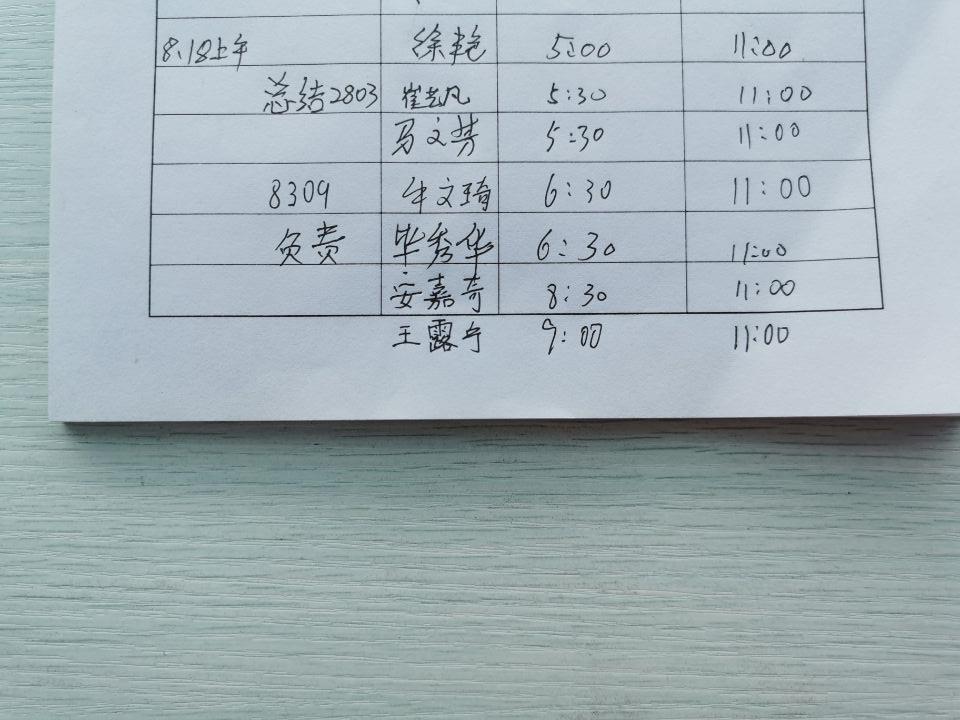 8.18上午 徐艳 5:00 11:00
总结2803 崔艺凡 5:30 11:00
马文芳 5:30 11:00
8309 牛文琦 6:30 11:00
负责 毕秀华 6:30 11:00
安嘉奇 8:30 11:00
王露宁 9:00 11:00